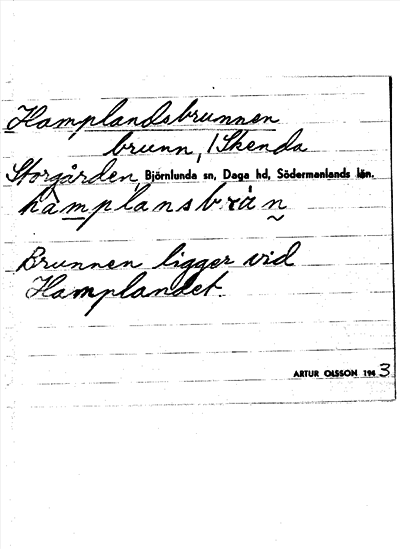 Hamplandsbrunnen
brunn, / Skenda
Storgården, Björnlunda sn, Daga hd, Södermanlands län.
hamplansbrän̰
Brunnen ligger vid
Hamplandet.
ARTUR OLSSON 1943